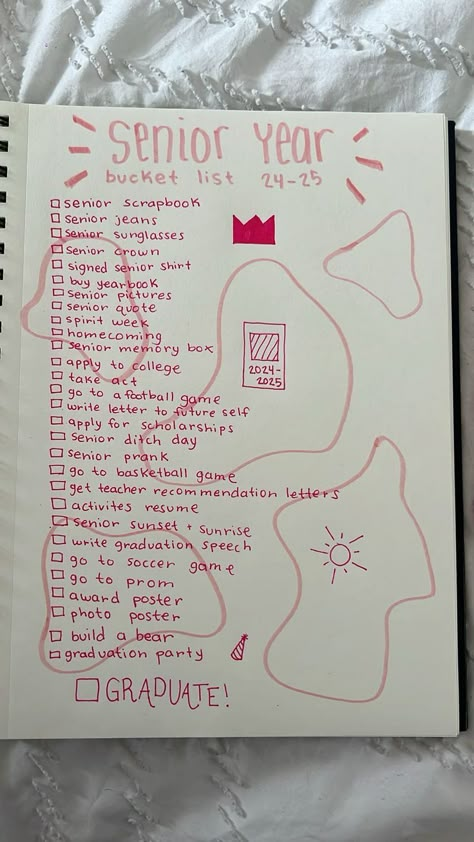 senior year
bucket list 24-25
senior scrapbook
senior jeans
senior sunglasses
senior crown
signed senior shirt
buy yearbook
senior pictures
senior quote
spirit week
homecoming
senior memory box
apply to college
take act
go to a football game
write letter to future self
apply for scholarships
senior ditch day
senior prank
go to basketball game
get teacher recommendation letters
activites resume
senior sunset + sunrise
write graduation speech
go to soccer game
go to prom
award poster
photo poster
build a bear
graduation party
GRADUATE!
2024-
2025